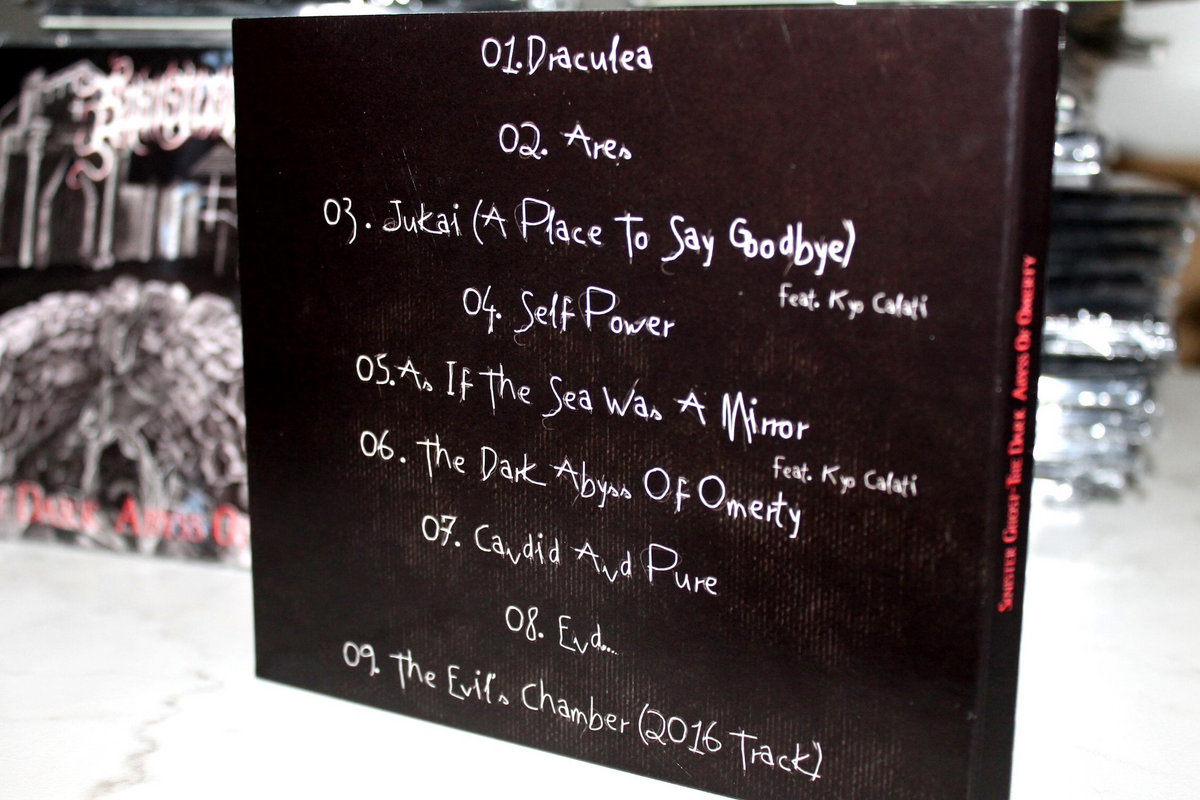 01. Draculea
02. Ares
03. Jukai (A Place To Say Goodbye)
feat. Kyo Calati
04. Self Power
05. As If The Sea Was A Mirror
feat. Kyo Calati
06. The Dark Abyss Of Omerty
07. Candid And Pure
08. End....
09. The Evil's Chamber (2016 Track)
Sinister Ghost-The Dark Abyss Of Omerty
Dark Abyss O